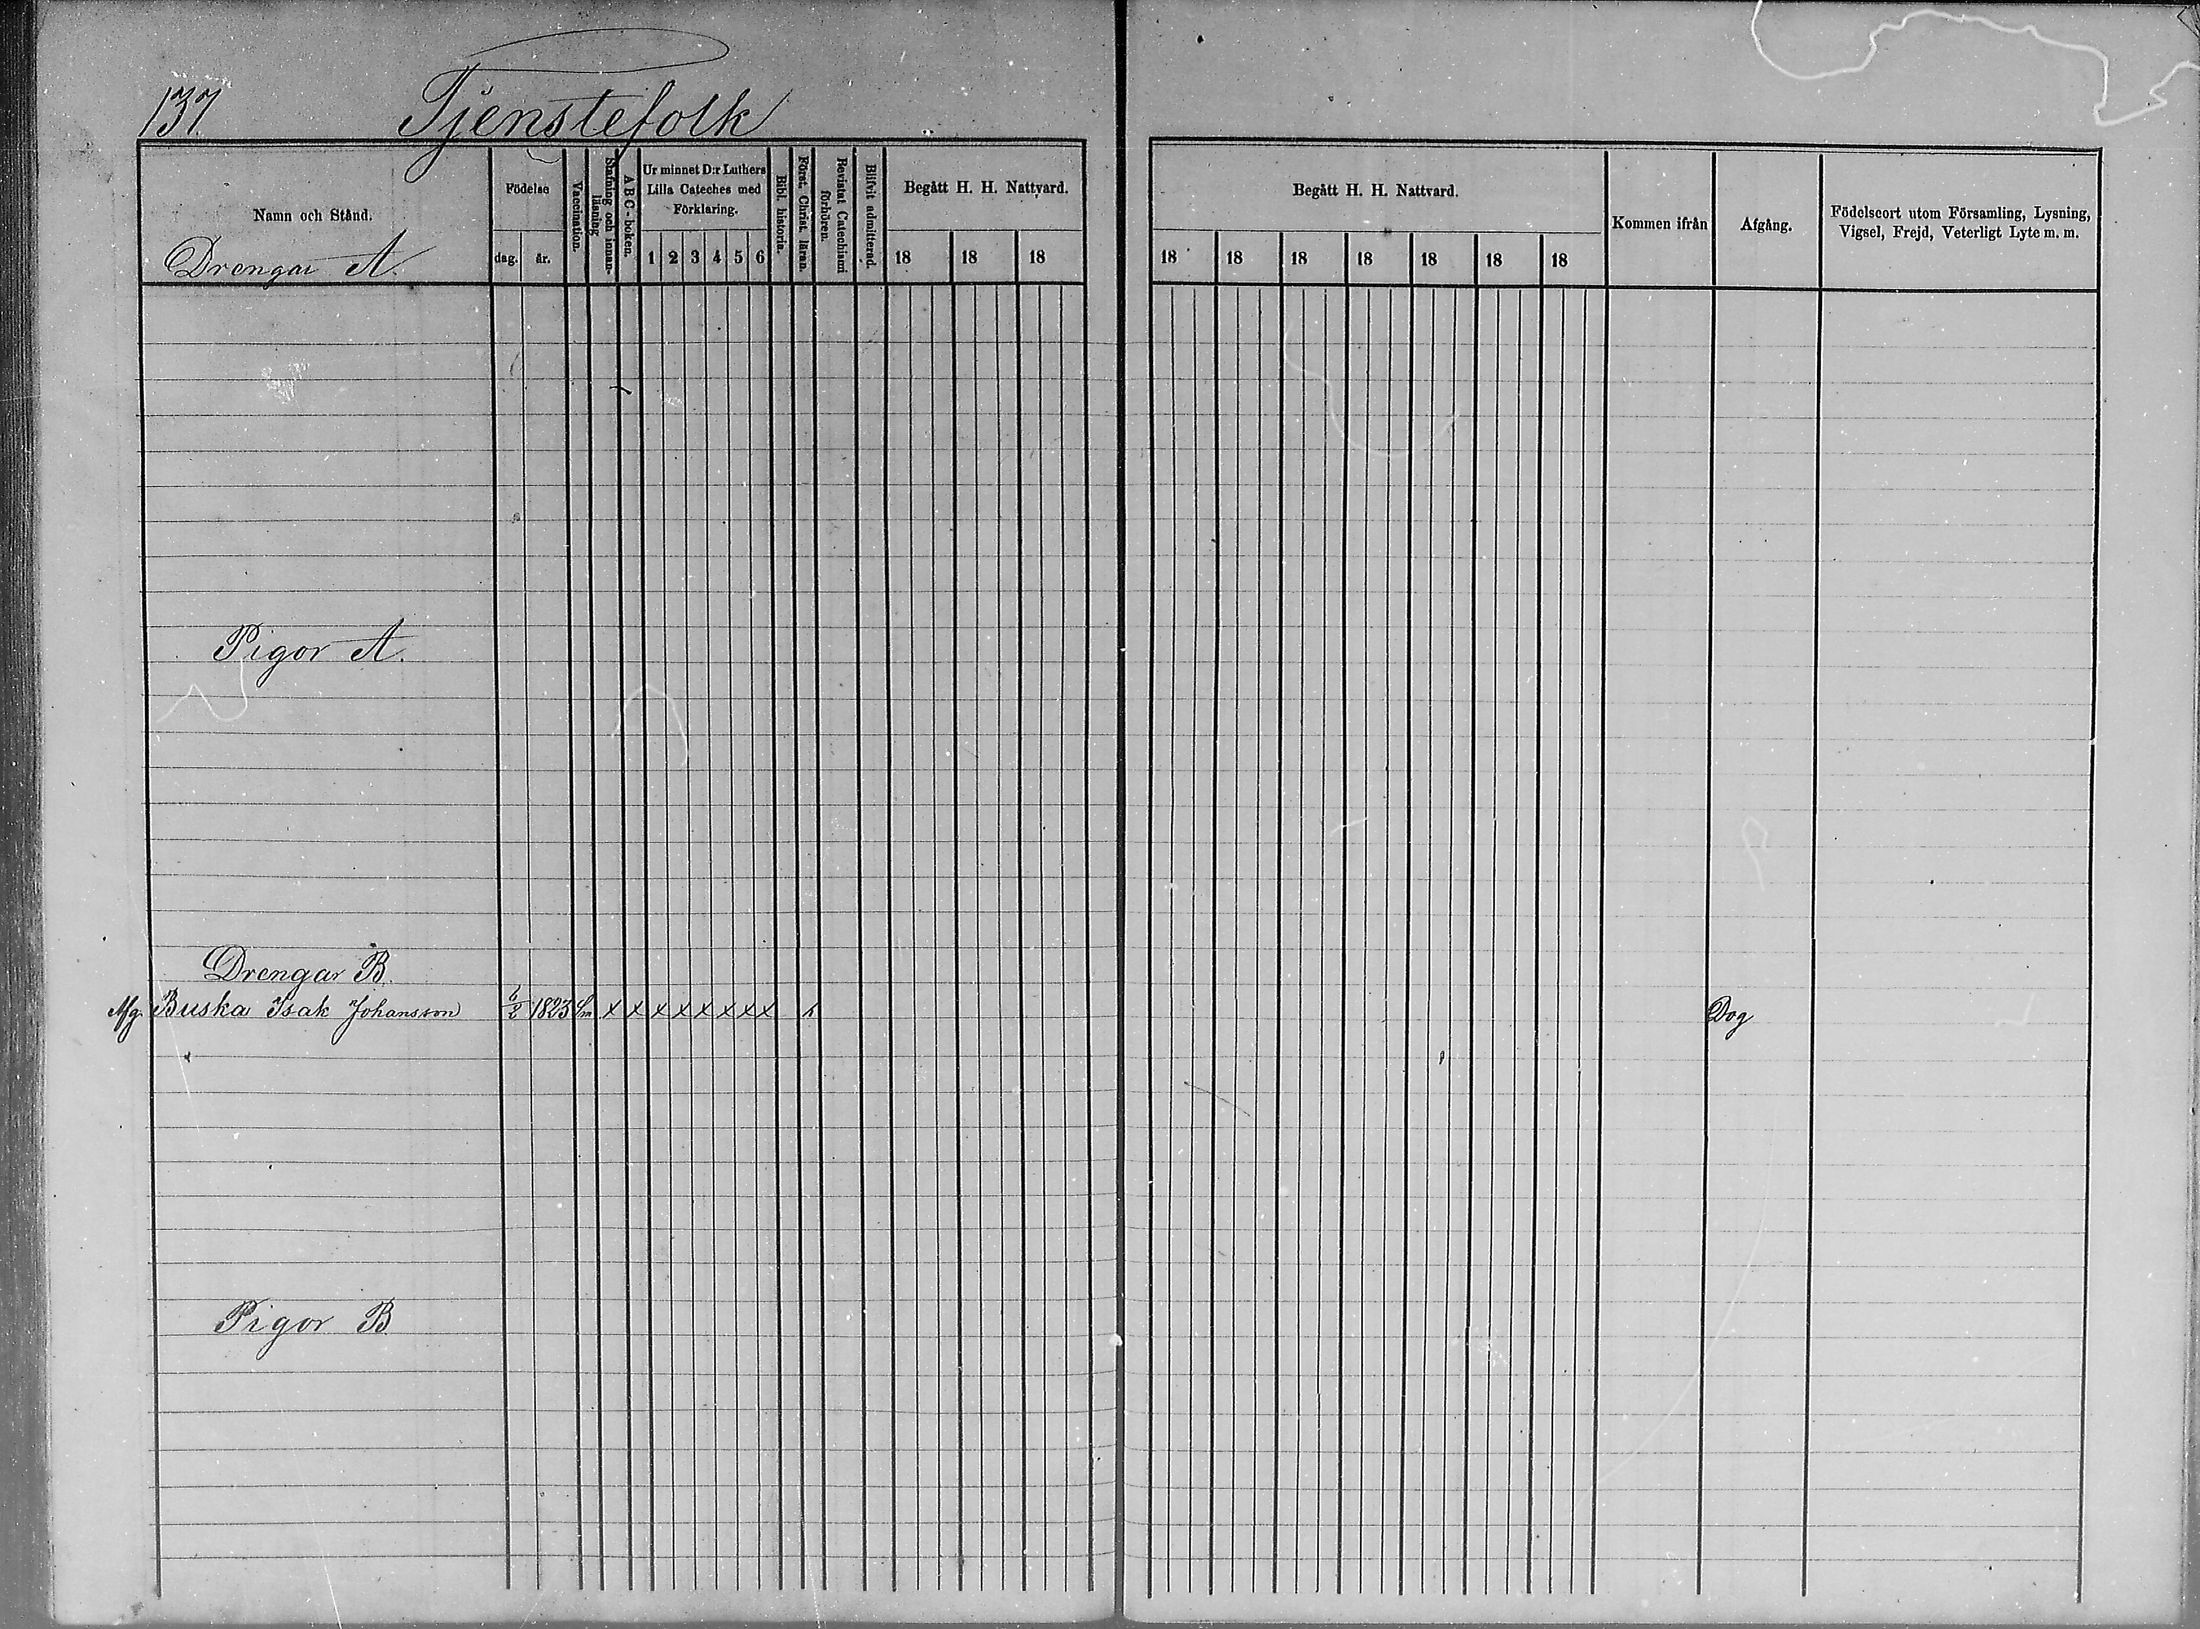 137. Tjenstefolk
Namn och Stånd.
Drengar A.
Födelse
dag. år.
Vaccination.
Stafning och innan-
läsning
A B C - boken.
Ur minnet D:r Luthers
Lilla Cateches med
Förklaring.
1 2 3 4 5 6
Bibl. historia.
Först. Christ. läran.
Bevistat Catechismi
förhören.
Blifvit admitterad.
Begått H. H. Nattvard.
18 18 18
Begått H. H. Nattvard.
18 18 18 18 18 18 18
Kommen ifrån
Afgång.
Födelseort utom Församling, Lysning,
Vigsel, Frejd, Veterligt Lyte m. m.
Pigor A.
Drengar B.
Buska Isak Johansson 1823 x x x x x x x x Dog
Pigor B